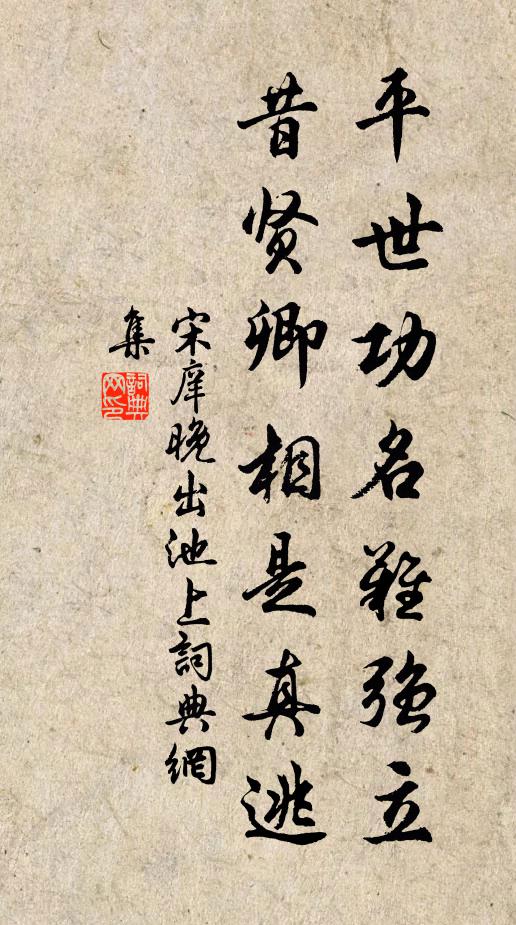 平世功名难強立
昔贤卿相是真逃
宋庠晚出池上詞典網
集
詞典网印